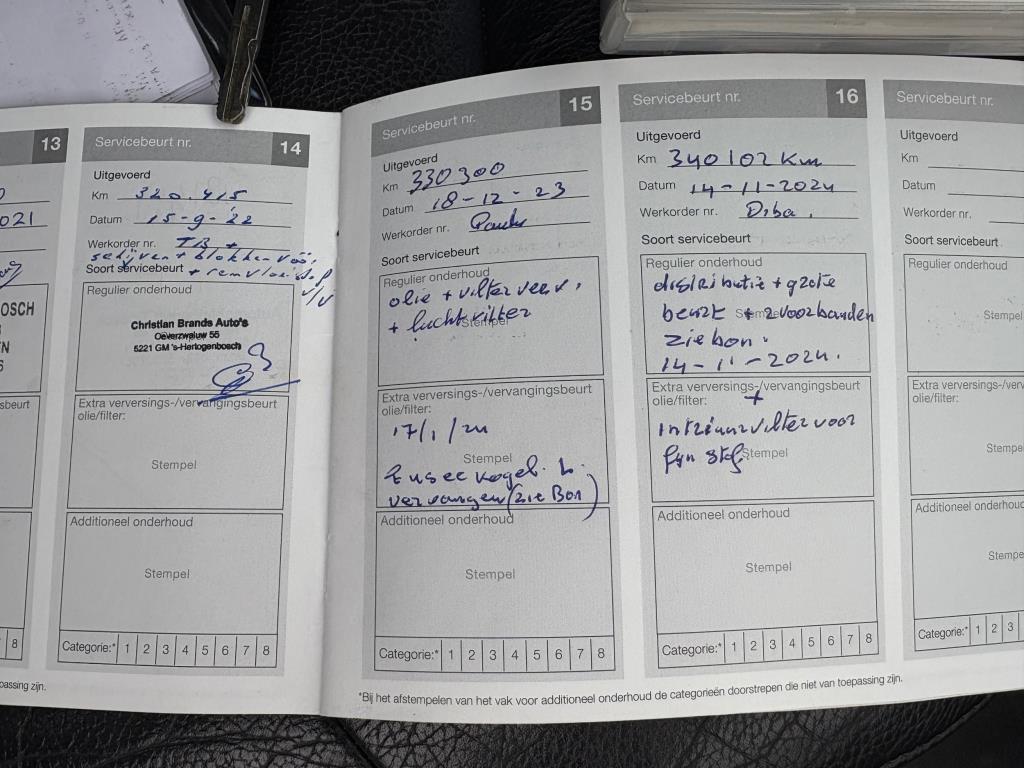 13
021
OSCH
EN
sbeurt
8
passing zijn.
Servicebeurt nr. 14
Uitgevoerd
Km 320.415
Datum 15-9-'22
Werkorder nr. TB +
schijven + blokken voor
Soort servicebeurt
V/V
Regulier onderhoud
Christian Brands Auto's
Oeverzwaluw 55
5221 GM 's-Hertogenbosch
Extra verversings-/vervangingsbeurt
olie/filter:
Stempel
Additioneel onderhoud
Stempel
Categorie:* 1 2 3 4 5 6 7 8
Servicebeurt nr. 15
Uitgevoerd
Km 330300
Datum 18-12-23
Werkorder nr.
Soort servicebeurt
Regulier onderhoud
olie + vilter verv.
Stempel
+ luchtvilter
Extra verversings-/vervangingsbeurt
olie/filter:
17/1/24
Stempel
kogel L.
vervangen (zie Bon)
Additioneel onderhoud
Stempel
Categorie:* 1 2 3 4 5 6 7 8
Servicebeurt nr. 16
Uitgevoerd
Km 340102 Km
Datum 14-11-2024
Werkorder nr. Diba.
Soort servicebeurt
Regulier onderhoud
distributie + grote
beurt + 2 voorbanden
Stempel
zie bon.
14-11-2024.
Extra verversings-/vervangingsbeurt
olie/filter: +
intrieurvilter voor
fyn stof
Stempel
Additioneel onderhoud
Stempel
Categorie:* 1 2 3 4 5 6 7 8
Servicebeurt nr.
Uitgevoerd
Km
Datum
Werkorder nr.
Soort servicebeurt
Regulier onderhoud
Stempel
Extra verversings-
olie/filter:
Stempe
Additioneel onderhoud
Stempe
Categorie:* 1 2 3
*Bij het afstempelen van het vak voor additioneel onderhoud de categorieën doorstrepen die niet van toepassing zijn.